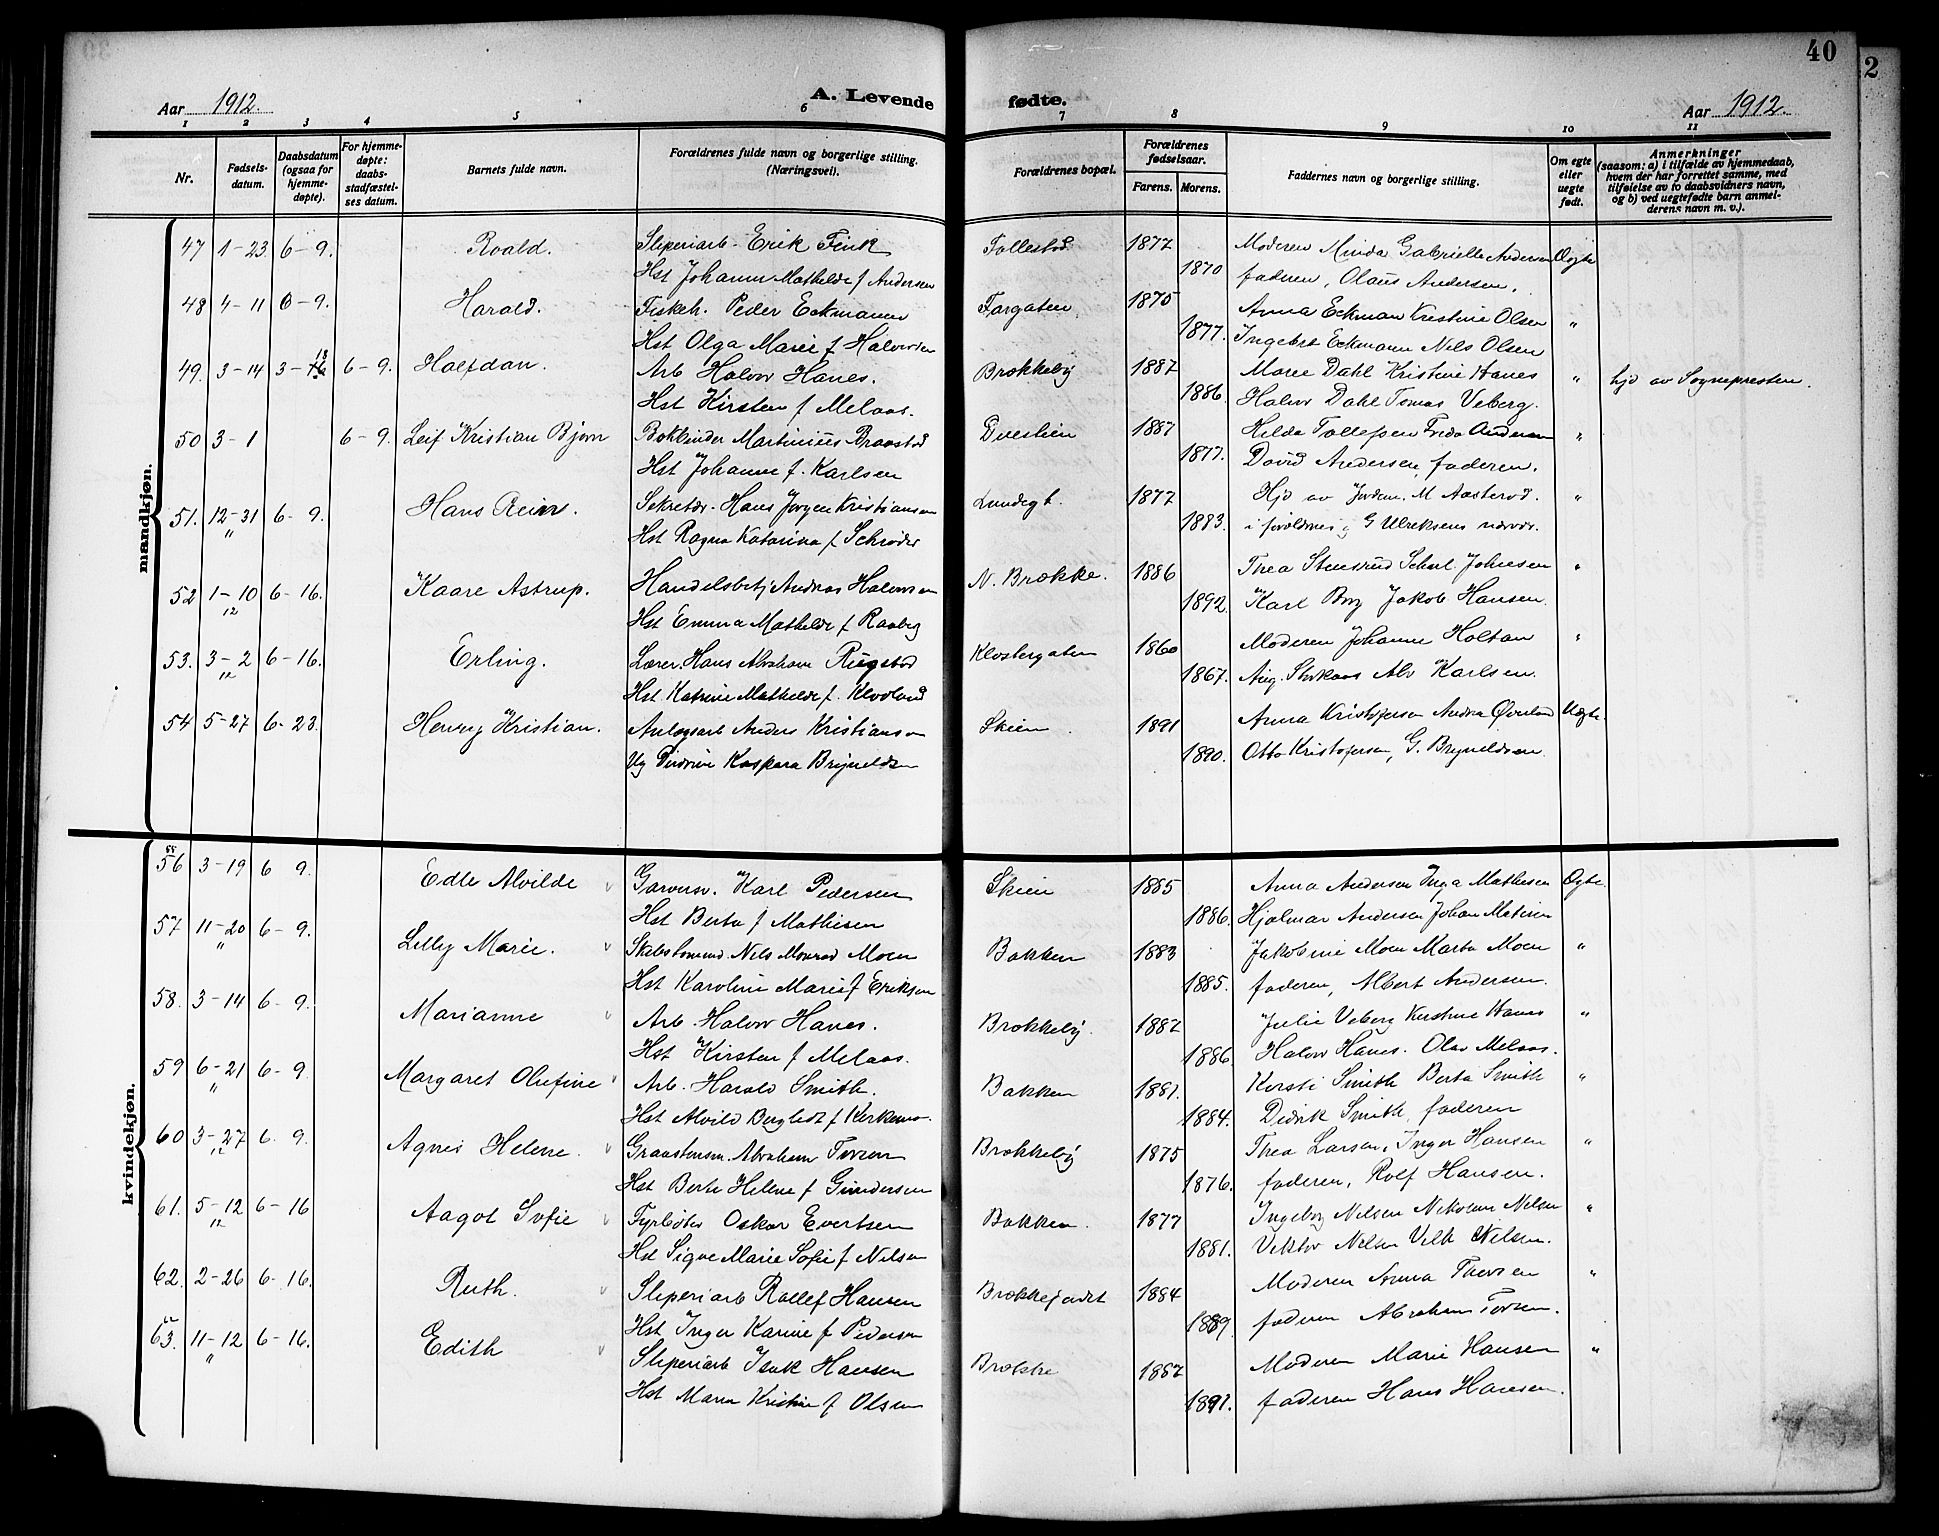 40
2
Aar 1912. A. Levende fødte. Aar 1912.
1 2 3 4 5 6 7 8 9 10 11
Nr.
Fødsels-
datum.
Daabsdatum
(ogsaa for
hjemme-
døpte).
For hjemme-
døpte:
daabs-
stadfæstel-
ses datum.
Barnets fulde navn.
Forældrenes fulde navn og borgerlige stilling.
(Næringsvei).
Forældrenes bopæl.
Forældrenes
fødselsaar.
Farens. Morens.
Faddernes navn og borgerlige stilling.
Om egte
eller
uegte
født.
Anmerkninger
(saasom: a) i tilfælde av hjemmedaab,
hvem der har forrettet samme, med
tilføielse av to daabsvidners navn,
og b) ved uegtefødte barn anmel-
derens navn m. v.).
mandkjøn.
47 1-23 6-9. Roald. Sliperiarb. Erik Fink Follestad 1877 Moderen Minda Gabrielle Andersen Ægte
Hst Johanne Mathilde f Andersen 1870 faderen, Olaus Andersen.
48 4-11 6-9. Harald. Fiskeh. Peder Eckmann Torgaten 1875 Anna Eckman Kristine Olsen "
Hst Olga Marie f Halvorsen 1877. Ingebret Eckmann Nils Olsen
49. 3-14 3-18 6-9. Halfdan. Arb Halvor Hanes. Brækkeby 1887 Maree Dahl Kristine Hanes " hjd av Sognepresten.
Hst Kirsten f Melaas. 1886. Halvor Dahl Tomas Veberg.
50 3-1 6-9. Leif Kristian Bjørn Bokbinder Martinius Braastad Duestien 1887 Hilda Tollefsen Frida Andersen "
Hst Johanne f. Karlsen 1877. David Andersen, faderen.
51. 12-31 6-9. Hans Rein. Sekretær. Hans Jørgen Kristiansen Lundegt. 1877 Hjd av Jordm. M Aasterud. "
" Hst Ragna Katarina f Schrøder 1883. i forældrenes og G Ulriksens nærvær.
52 1-10 6-16. Kaare Astrup. Handelsbetj Andreas Halvorsen N. Brække. 1886 Thea Stensrud Scharl Johnsen "
12 Hst Emma Mathilde f Raaberg 1892. Karl Borg Jakob Hansen.
53. 3-2 6-16. Erling. Lærer. Hans Abraham Rugstad Klostergaten 1860 Moderen Johanne Holtan "
12 Hst Katrine Mathilde f. Klovland 1867. Aug. Storkaas Alv Karlsen.
54 5-27 6-23. Henry Kristian. Anlægsarb Anders Kristiansen Skien. 1891 Anna Kristofersen Andrea Øverland Uægte.
Ug Kaspara Brynildsen 1890. Otto Kristofersen, G. Brynildsen.
kvindekjøn.
55
56 3-19 6 9. Edle Alvilde v Garversv. Karl Pedersen Skien 1885 Anna Andersen Inga Mathisen Ægte.
Hst Berta f Mathisen 1886. Hjalmar Andersen Johan Matisen
57 11-20 6-9. Lilly Marie. v Skibstømmd. Nils Monrad Moen Bakken 1883 Jakobine Moen Marta Moen "
" Hst Karoline Marie f Eriksen 1885. faderen, Albert Andersen.
58. 3-14 6-9. Marianne v Arb. Halvor Hanes. Brækkeby. 1887 Julie Veberg Kristine Hanes "
Hst Kirsten f Melaas. 1886. Halvor Hanes. Olav Melaas.
59 6-21 6-9. Margaret Olufine v Arb. Harald Smith. Bakken 1881. Kersti Smith Berta Smith "
" Hst Alvild Bergliot f Kirkemo. 1884. Didrik Smith, faderen
60 3-27 6. 9. Agnes Helene. v Graastensm. Abraham Torsen Brækkeby 1875 Thea Larsen, Inger Hansen "
12 Hst Berte Helene f Gundersen 1876. faderen, Rolf Hansen.
61. 5-12 6-16 Aagot Sofie v Fyrbøter Oskar Evertsen Bakken. 1877 Ingeborg Nilsen Nikoline Nilsen "
12 Hst Signe Marie Sofie f Nilsen 1881. Viktor Nilsen Vilh Nilsen.
62. 2-26 6-16. Ruth. v Sliperiarb Rollef Hansen Brækkejordet 1884 Moderen Anna Thorsen "
Hst Inger Karine f Pedersen 1889. faderen Abraham Torsen.
63. 11-12 6-16. Edith v Sliperiarb Isak Hansen Brække 1887 Moderen Marie Hansen "
" Hst Maren Kristine f Olsen 1891. faderen Hans Hansen.